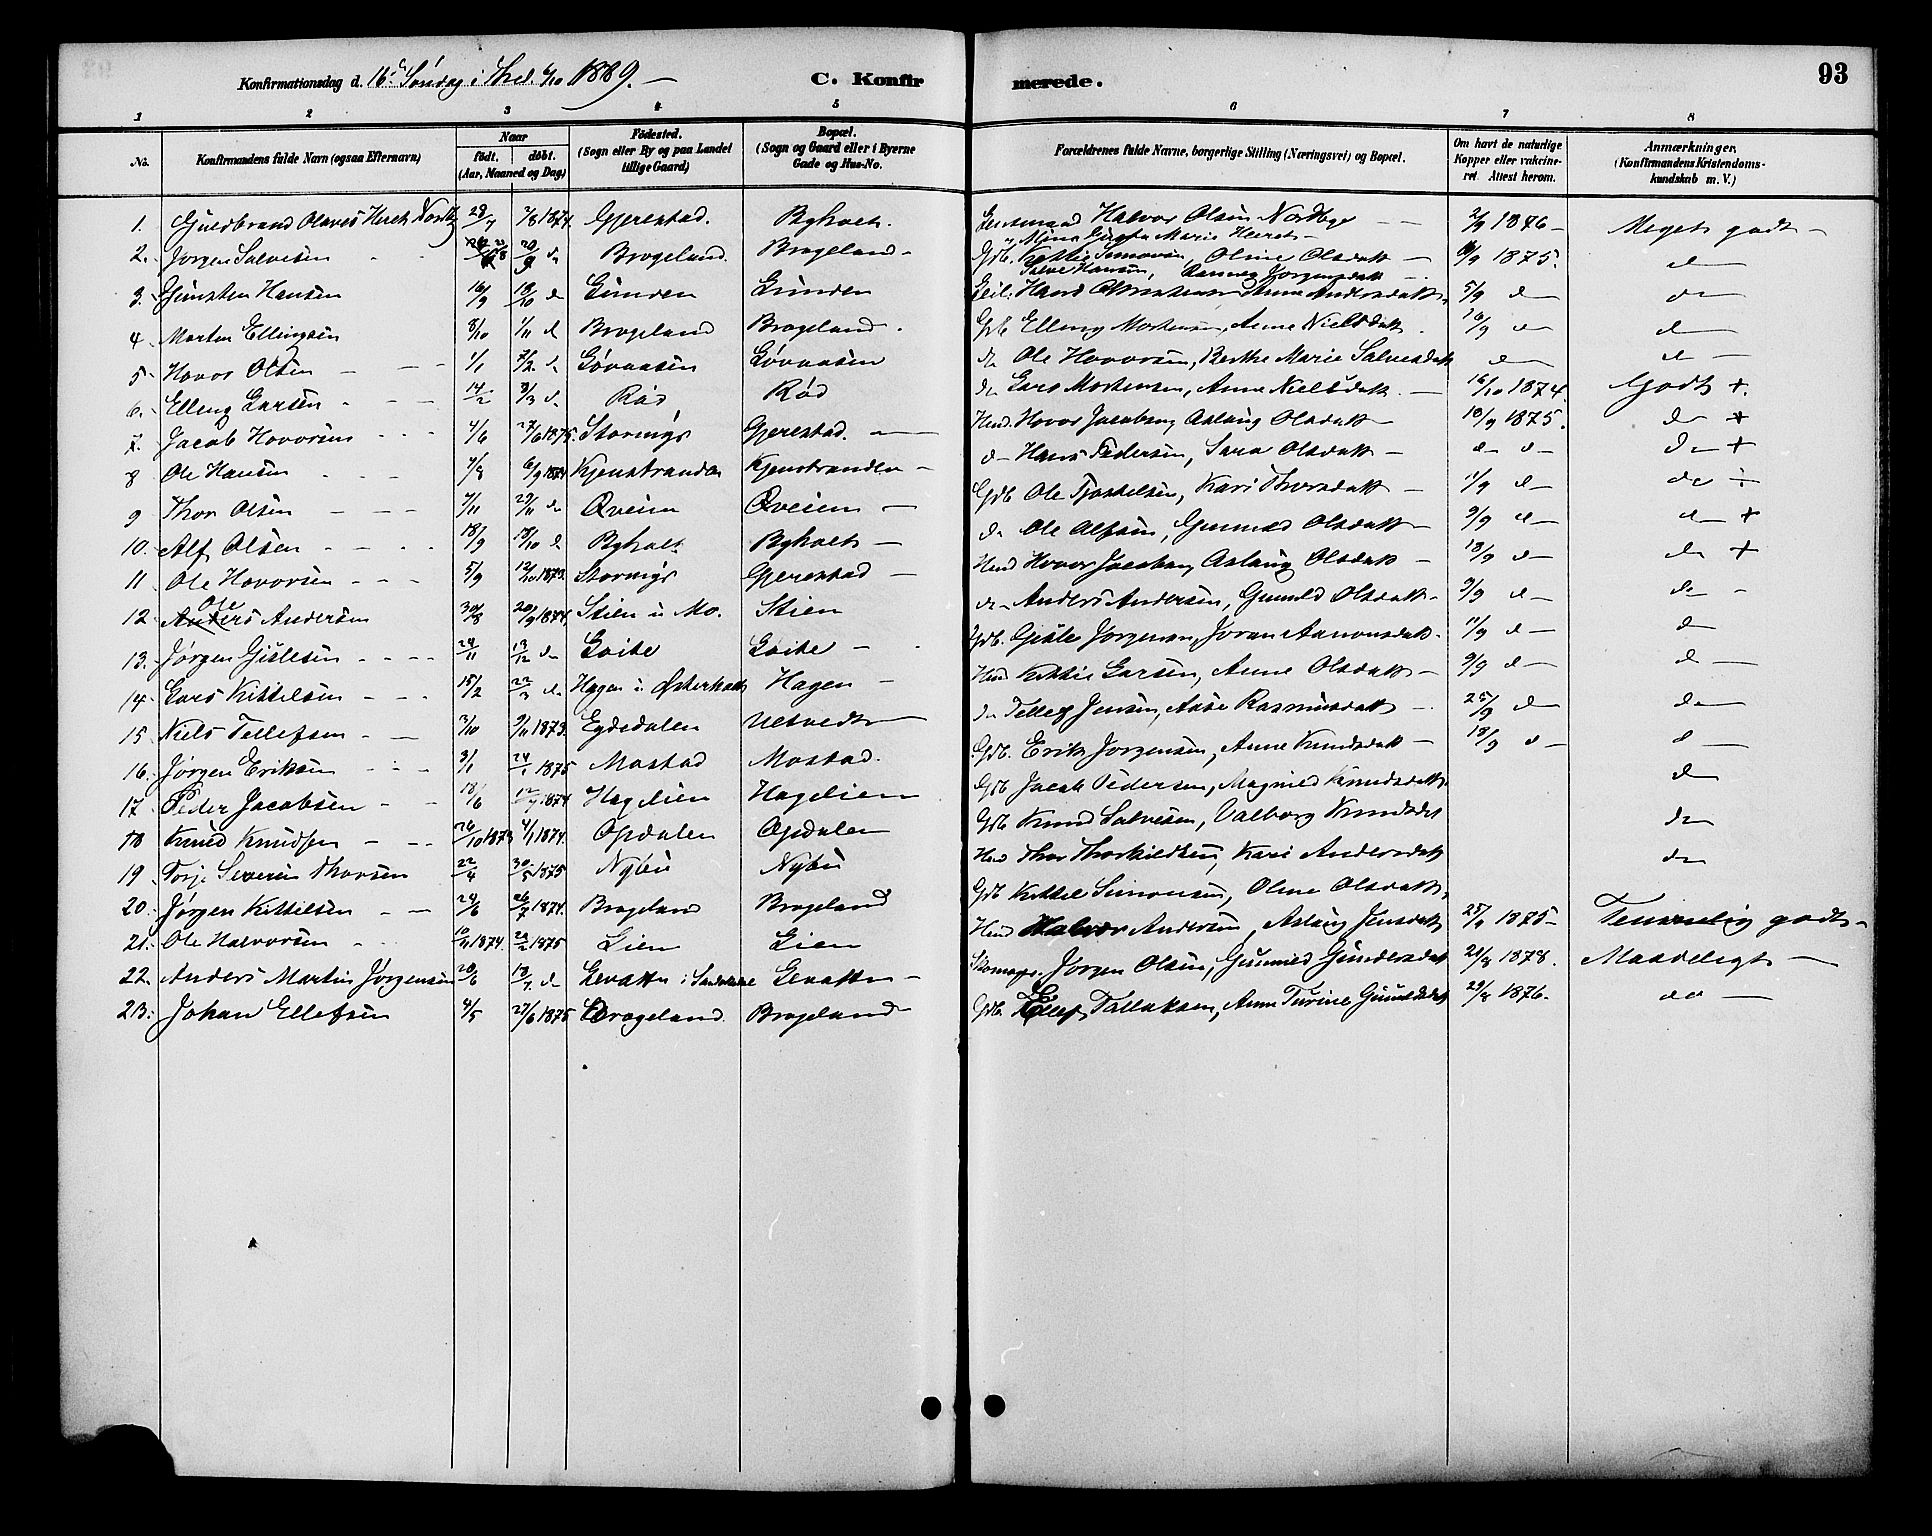 93
Konfirmationsdag d. 16de Søndag i Thrl. 6/10 1889. —
C. Konfir merede.
1 2 3 4 5 6 7 8
No. Konfirmandens fulde Navn (ogsaa Efternavn) Naar født. døbt. (Aar, Maaned og Dag) Fødested. (Sogn eller By og paa Landet tillige Gaard) Bopæl. (Sogn og Gaard eller i Byerne Gade og Hus-No. Forældrenes fulde Navne, borgerlige Stilling (Næringsvei) og Bopæl. Om havt de naturlige Kopper eller vakcineret. Attest herom. Anmærkninger. (Konfirmandens Kristendomskundskab m. V.)
1. Guldbrand Olaves 2/8 1874. Gjerestad. Byholt. Halvor Olsen Nordbye — 2/9 1876 — Meget godt —
2. Jørgen Salvesen 20/9 d Brogeland. Brogeland — Gdb. Kittil Simonsen, Oline Olsdatt — 1875. d
Salve Hansen, Jørgensdatt
3. Gunsten Hansen 16/9 18/10 d Gunden Gunden Hans Anne Andersdatt 5/9 d do
4. Morten Ellingsen 8/10 1/11 d Brogeland Brogeland. Gdb Elling Mortensen, Anne Nielsdatt. 16/9 d d
5. Hovor Olsen 1/1 7/2 d Løvaasen Løvaasen d Ole Hovorsen, Berthe Marie Salvesdatt d d —
6. Elleng Larsen 14/2 8/3 d Rød Rød d Lars Mortensen, Anne Nielsdatt. — 16/10 1874. Godt +.
7. Jacob Hovorsen 4/6 27/6 1875. Stormyr Gjerestad. Hmd. Hovor Jacobsen, Aslaug Olsdatt 18/9 1875. d +
8 Ole Hansen 7/8 6/9 1874 Kjenstranden Kjenstranden — d Hans Pedersen, Sara Olsdatt — d d d +
9 Thor Olsen 7/11 29/11 d Qveim Qveim — Gdb Ole Tjostelsen, Kari Thorsdatt — 1/9 d do
10. Alf Olsen 18/9 18/10 d Byholt Byholt — d Ole Alfsen, Gunild Olsdatt 9/9 d d +
11 Ole Hovorsen 5/9 12/10 1873. Stormyr Gjerestad — Hmd Hovor Jacobsen, Aslaug Olsdatt — 18/9 d d +
12. Ole Andersen 30/8 20/9 1874. Stien u Mo. Stien d Anders Andersen, Gunild Olsdatt — 9/9 d d —
13. Jørgen Gislesen 24/11 13/12 d Loite Loite — Gdb. Gisle Jørgensen, Jøran Aanonsdatt. 11/9 d d
14. Lars Kittelsen 15/2 22/3 d Hagen u Østerholt Hagen — Hmd Kittil Larsen, Anne Olsdatt — 9/9 d d —
15. Niels Tellefsen 3/10 9/11 1873. Egdedalen Ulsvedt d Tellef Jensen, Aase Rasmusdatt — 25/9 d d
16. Jørgen Eriksen 3/1 24/1 1875 Mostad Mostad. Gdb. Erik Jørgensen, Anne Knudsdatt — 18/9 d d
17. Peder Jacobsen 18/6 12/7 1874 Hagelien Hagelien Gdb Jacob Pedersen, Magnild Knudsdatt d
18 Knud Knudsen 26/10 1873 4/1 1874. Opdalen Opdalen Gdb Knud Salvesen, Valborg Knudsdt d
19. Torje Severin Thorsen 22/4 30/5 1875 Nybu Nybu Hmd Thor Thorkildsen, Kari Andersdatt d
20. Jørgen Kittilsen 24/6 26/7 1874. Brogeland Brogeland Gdb Kittel Simonsen, Oline Olsdatt.
21. Ole Halvorsen 10/11 1874. 22/2 1875 Lien Lien Hmd Halvor Andersen, Aslaug Jensdatt 25/9 1875 — Temmelig godt —
22. Anders Martin Jørgensen 20/6 18/7 d Levatten i Sandøkedal Levatten — Skomager. Jørgen Olsen, Gunild Gundersdatt 29/8 1878. Maadeligt —
23. Johan Ellefsen 4/5 27/6 1875 Brogeland. Brogeland — Gdb. Ellef Tallaksen, Anne Turine Gunildsdt 29/8 1876. do —